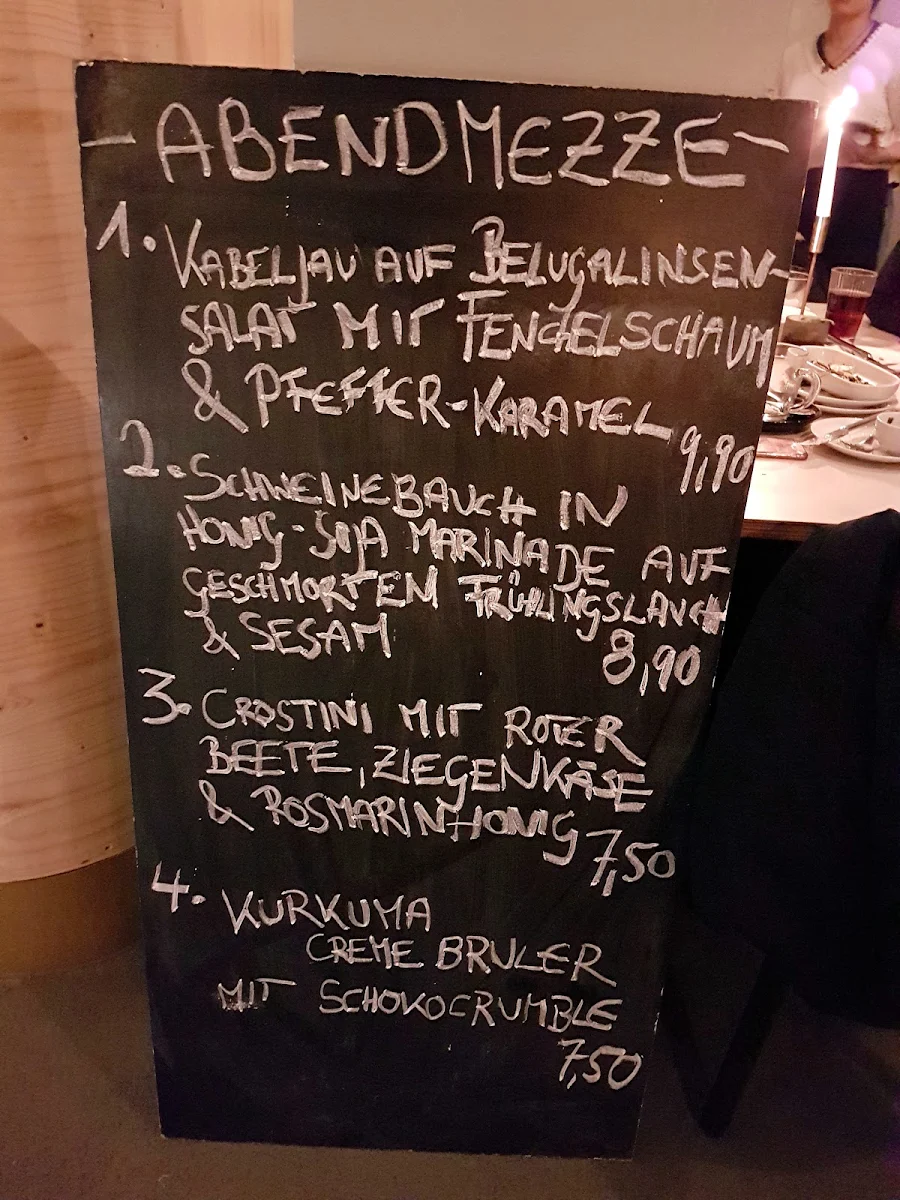 - ABENDMEZZE -
1. KABELJAU AUF BELUGALINSEN-
SALAT MIT FENCHELSCHAUM
& PFEFFER-KARAMEL
9,90
2. SCHWEINEBAUCH IN
HONIG-SOJA MARINADE AUF
GESCHMORTEN FRÜHLINGSLAUCH
& SESAM
8,90
3. CROSTINI MIT ROTER
BEETE, ZIEGENKÄSE
& ROSMARINHONIG
7,50
4. KURKUMA
CREME BRULER
MIT SCHOKOCRUMBLE
7,50